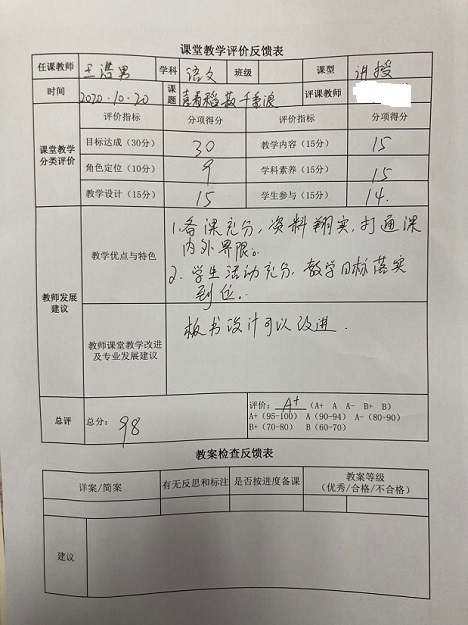 课堂教学评价反馈表
任课教师 王浩男 学科 语文 班级 课型 讲授
时间 2020.10.20 课题 喜看稻菽千重浪 评课教师
课堂教学分类评价 评价指标 分项得分 评价指标 分项得分
目标达成（30分） 30 教学内容（15分） 15
角色定位（10分） 9 学科素养（15分） 15
教学设计（15分） 15 学生参与（15分） 14.
教师发展建议
教学优点与特色
1.备课充分，资料翔实，打通课
内外界限。
2.学生活动充分，教学目标落实
到位。
教师课堂教学改进
及专业发展建议
板书设计可以改进.
总评 总分： 98
评价： A+ （A+ A A- B+ B）
A+（95-100） A（90-94） A-（80-90）
B+（70-80） B（60-70）
教案检查反馈表
详案/简案 有无反思和标注 是否按进度备课 教案等级
（优秀/合格/不合格）
建议